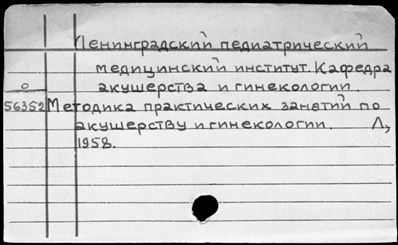 Ленинградский педиатрический
медицинский институт. Кафедра
акушерства и гинекологии.
О
56352 Методика практических занятий по
акушерству и гинекологии. Л,
1958.